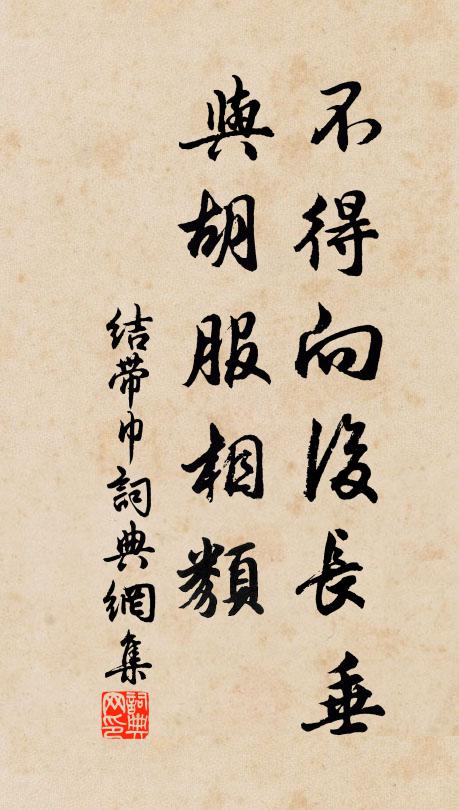 不得向後長垂
與胡服相類
结帶巾詞典網集
詞典网印